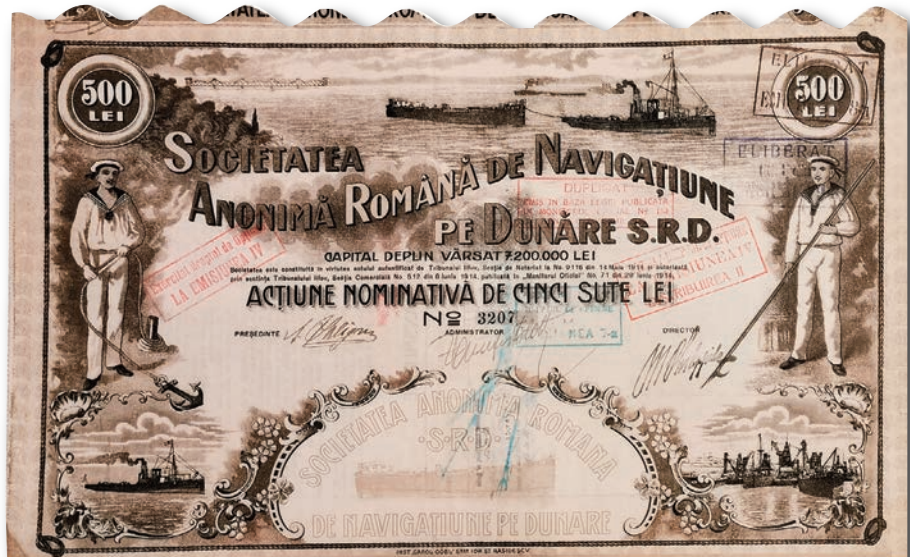 500
LEI
500
LEI
SOCIETATEA
ANONIMĂ ROMÂNĂ DE NAVIGAȚIUNE
PE DUNĂRE S.R.D.
CAPITAL DEPLIN VĂRSAT 7.200.000 LEI
Societatea este constituită in virtutea actului autentificat de Tribunalul Ilfov, Secția de Notariat la No. 9176 din 14 Maiu 1914 și autorizată
prin sentința Tribunalului Ilfov, Secția Comercială No. 517 din 6 Iunie 1914, publicată în „Monitorul Oficial" No. 71 din 29 Iunie 1914.
ACȚIUNE NOMINATIVĂ DE CINCI SUTE LEI
Nº 3207
PREȘEDINTE
ADMINISTRATOR
DIRECTOR
ELIBERAT
DUPLICAT
LA EMISIUNEA IV
SOCIETATEA ANONIMA ROMANA
S·R·D
DE NAVIGATIUNE PE DUNARE